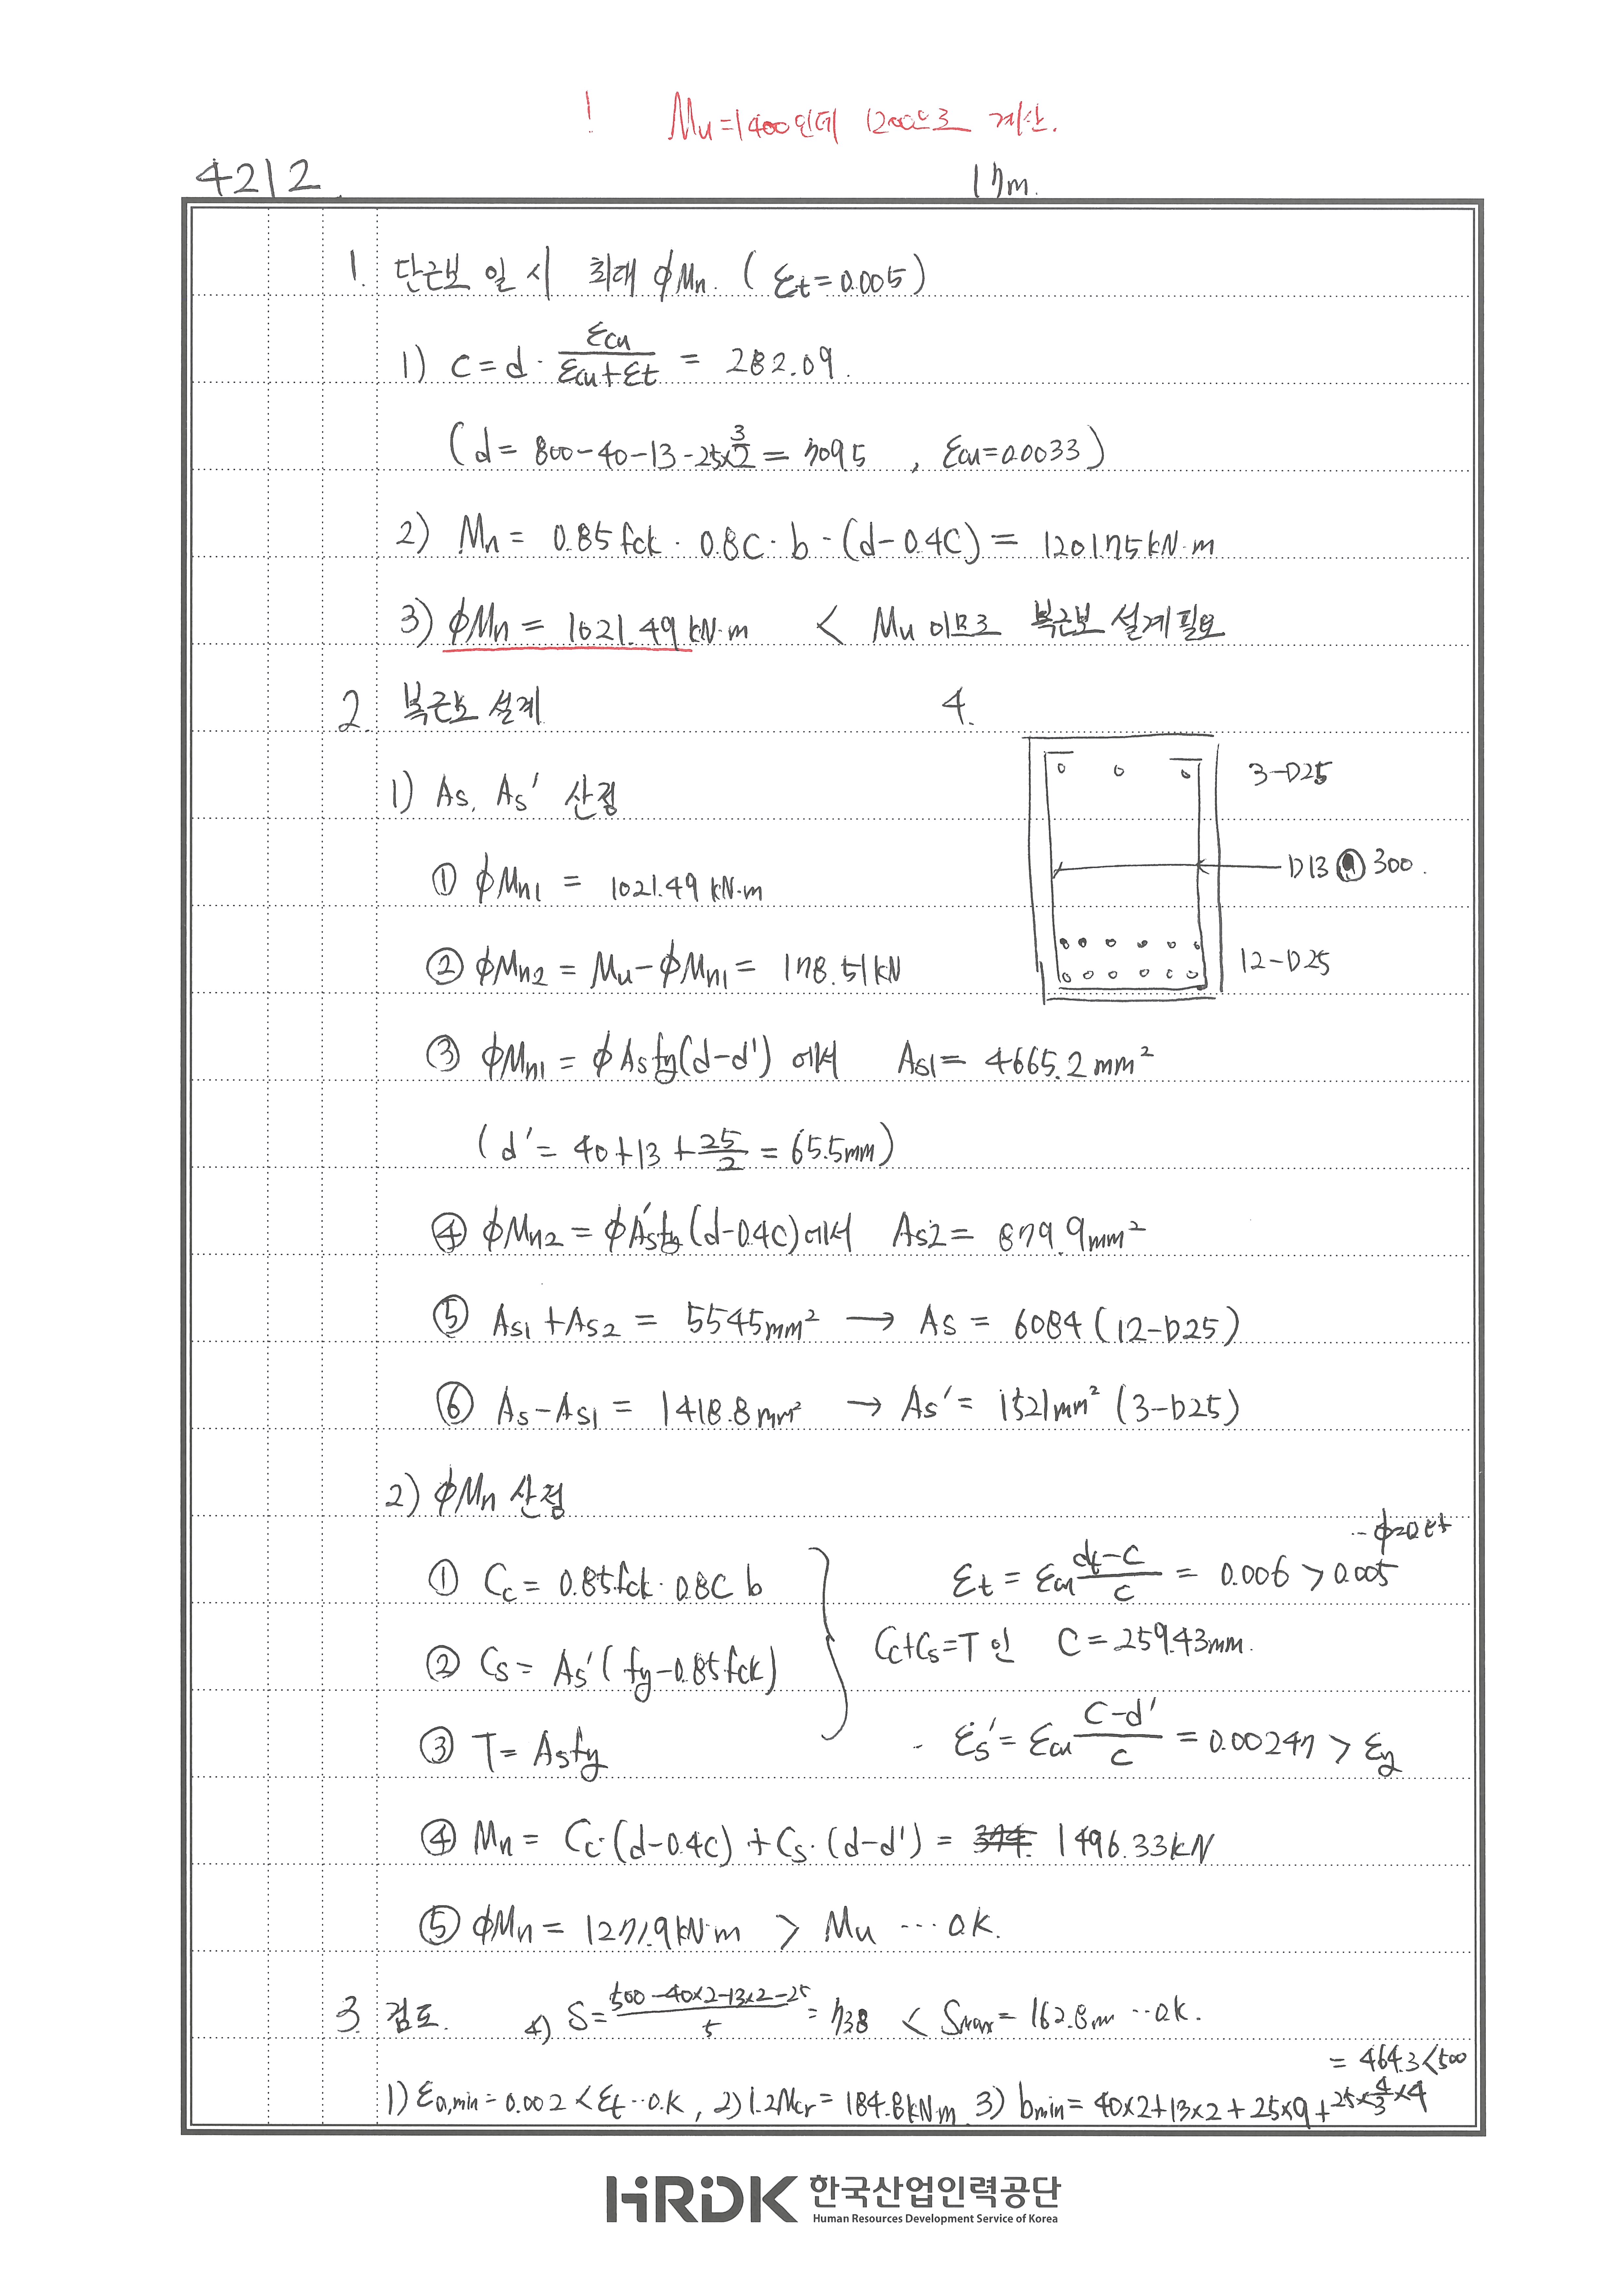 ! Mu=1400인데 1200으로 계산.
4212. 17m.
1. 단근보 일 시 최대 ϕMn. ( εt=0.005 )
1) c = d · εcu / (εcu+εt) = 282.09.
( d = 800-40-13-25×3/2 = 709.5 , εcu=0.0033 )
2) Mn = 0.85fck · 0.8C · b · (d-0.4C) = 1201.75kN·m
3) ϕMn = 1021.49 kN·m < Mu 이므로 복근보 설계 필요
2. 복근보 설계
1) As, As' 산정
① ϕMn1 = 1021.49 kN·m
② ϕMn2 = Mu-ϕMn1 = 178.51kN
③ ϕMn1 = ϕAsfy(d-d') 에서 As1 = 4665.2mm²
( d' = 40+13+25/2 = 65.5mm )
④ ϕMn2 = ϕAs'fy(d-0.4C)에서 As2 = 879.9mm²
⑤ As1+As2 = 5545mm² → As = 6084 (12-D25)
⑥ As-As1 = 1418.8mm² → As' = 1521mm² (3-D25)
4.
3-D25
D13 @ 300.
12-D25
2) ϕMn 산정
① Cc = 0.85fck · 0.8C b
② Cs = As'( fy-0.85fck)
③ T = Asfy
·· ϕ=0.85
εt = εcu (dt-c)/c = 0.006 > 0.005
Cc+Cs=T 인 C=259.43mm.
· εs' = εcu (C-d')/c = 0.00247 > εy
④ Mn = Cc·(d-0.4C) + Cs·(d-d') = 1496.33kN
⑤ ϕMn = 1271.9kN·m > Mu ··· O.K.
3. 검토. 4) S = (500-40×2-13×2-25)/5 = 73.8 < Smax = 162.8m ··O.K.
1) εa,min = 0.002 < εt ··O.K, 2) 1.2Mcr = 184.8kN·m 3) bmin = 40×2+13×2+25×9+25×4/3×4
= 464.3<500
HRDK 한국산업인력공단
Human Resources Development Service of Korea